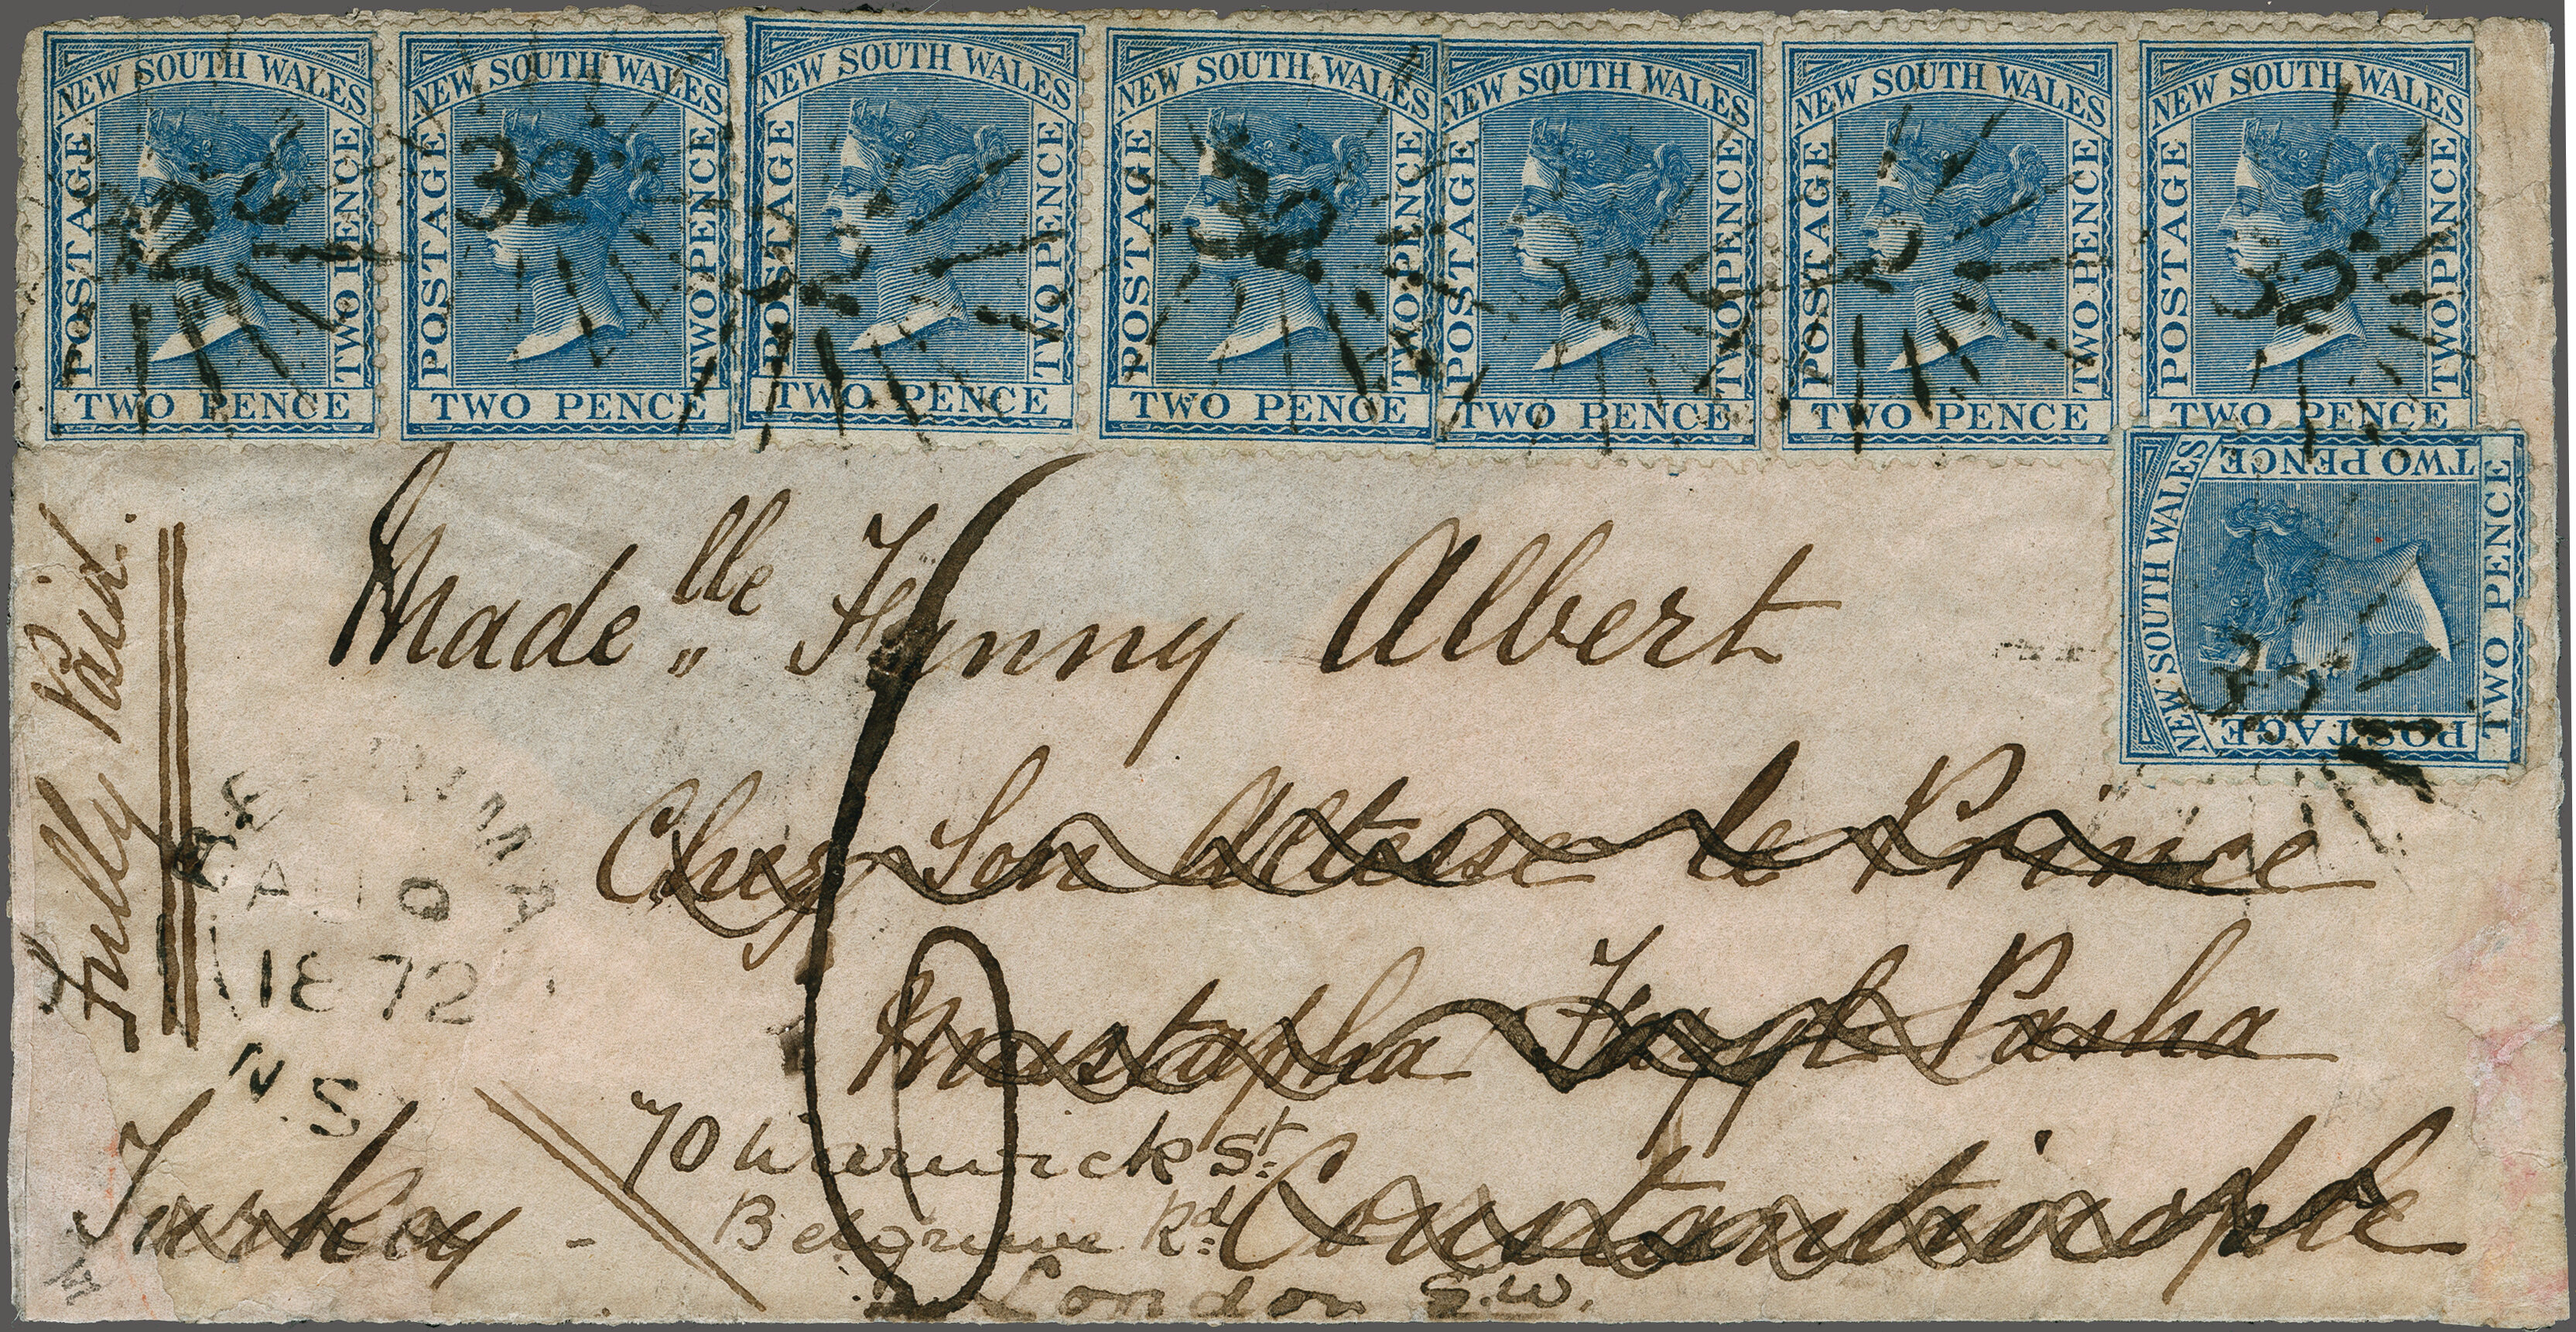 NEW SOUTH WALES POSTAGE TWO PENCE TWO PENCE
32
NEW SOUTH WALES POSTAGE TWO PENCE TWO PENCE
32
NEW SOUTH WALES POSTAGE TWO PENCE TWO PENCE
NEW SOUTH WALES POSTAGE TWO PENCE TWO PENCE
32
NEW SOUTH WALES POSTAGE TWO PENCE TWO PENCE
32
NEW SOUTH WALES POSTAGE TWO PENCE TWO PENCE
NEW SOUTH WALES POSTAGE TWO PENCE TWO PENCE
32
NEW SOUTH WALES POSTAGE TWO PENCE TWO PENCE
32
Fully Paid.
Made.lle Fanny Albert
Chez Son Altesse le Prince
Mustapha Fazyl Pasha
Constantinople
Turkey -
6
70 Warwick St
Belgrave Rd
London S.W.
1872
N.S